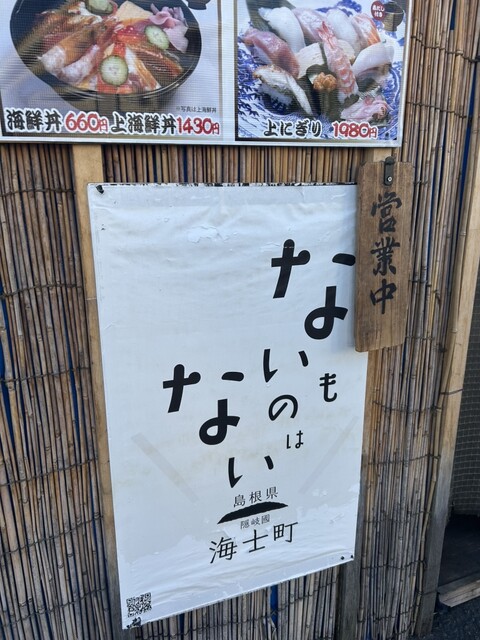 海鮮丼660円上海鮮丼1430円
※写真は上海鮮丼
上にぎり 1980円
営業中
ないものはない
島根県
隠岐國
海士町